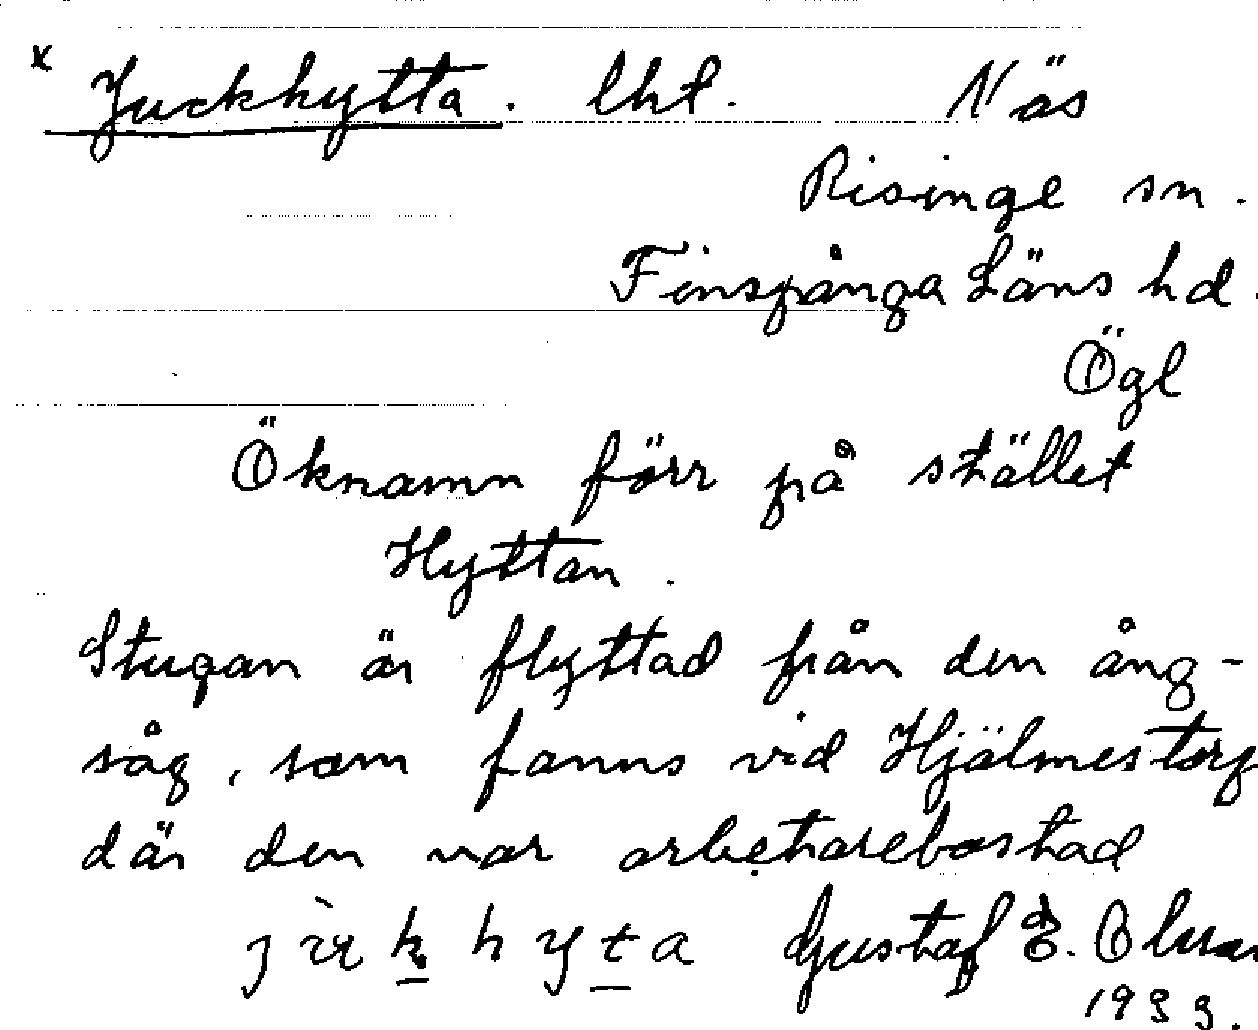 x Juckhytta. lht. Näs
Risinge sn.
Finspånga Läns hd.
Ögl
Öknamn förr på stället
Hyttan.
Stugan är flyttad från den ång-
såg, som fanns vid Hjälmestorp
där den var arbetarebostad
Gustaf E. Olsson
1933.